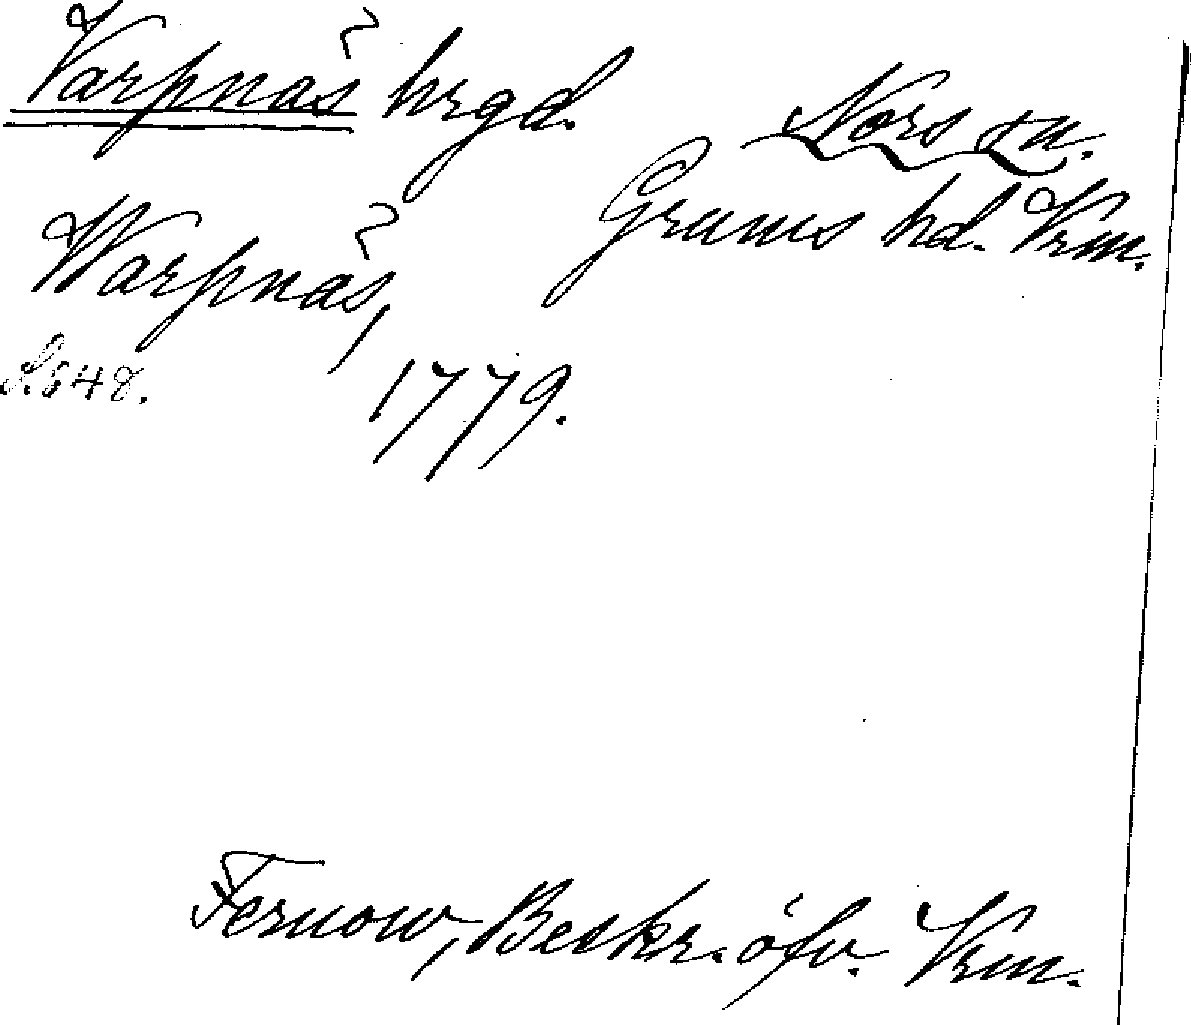 Varpnäs hrgd.
Nors sn.
Grums hd. Vrm.
Warpnäs,
S. 648.
1779.
Fernow, Beskr. öfv. Vrm.